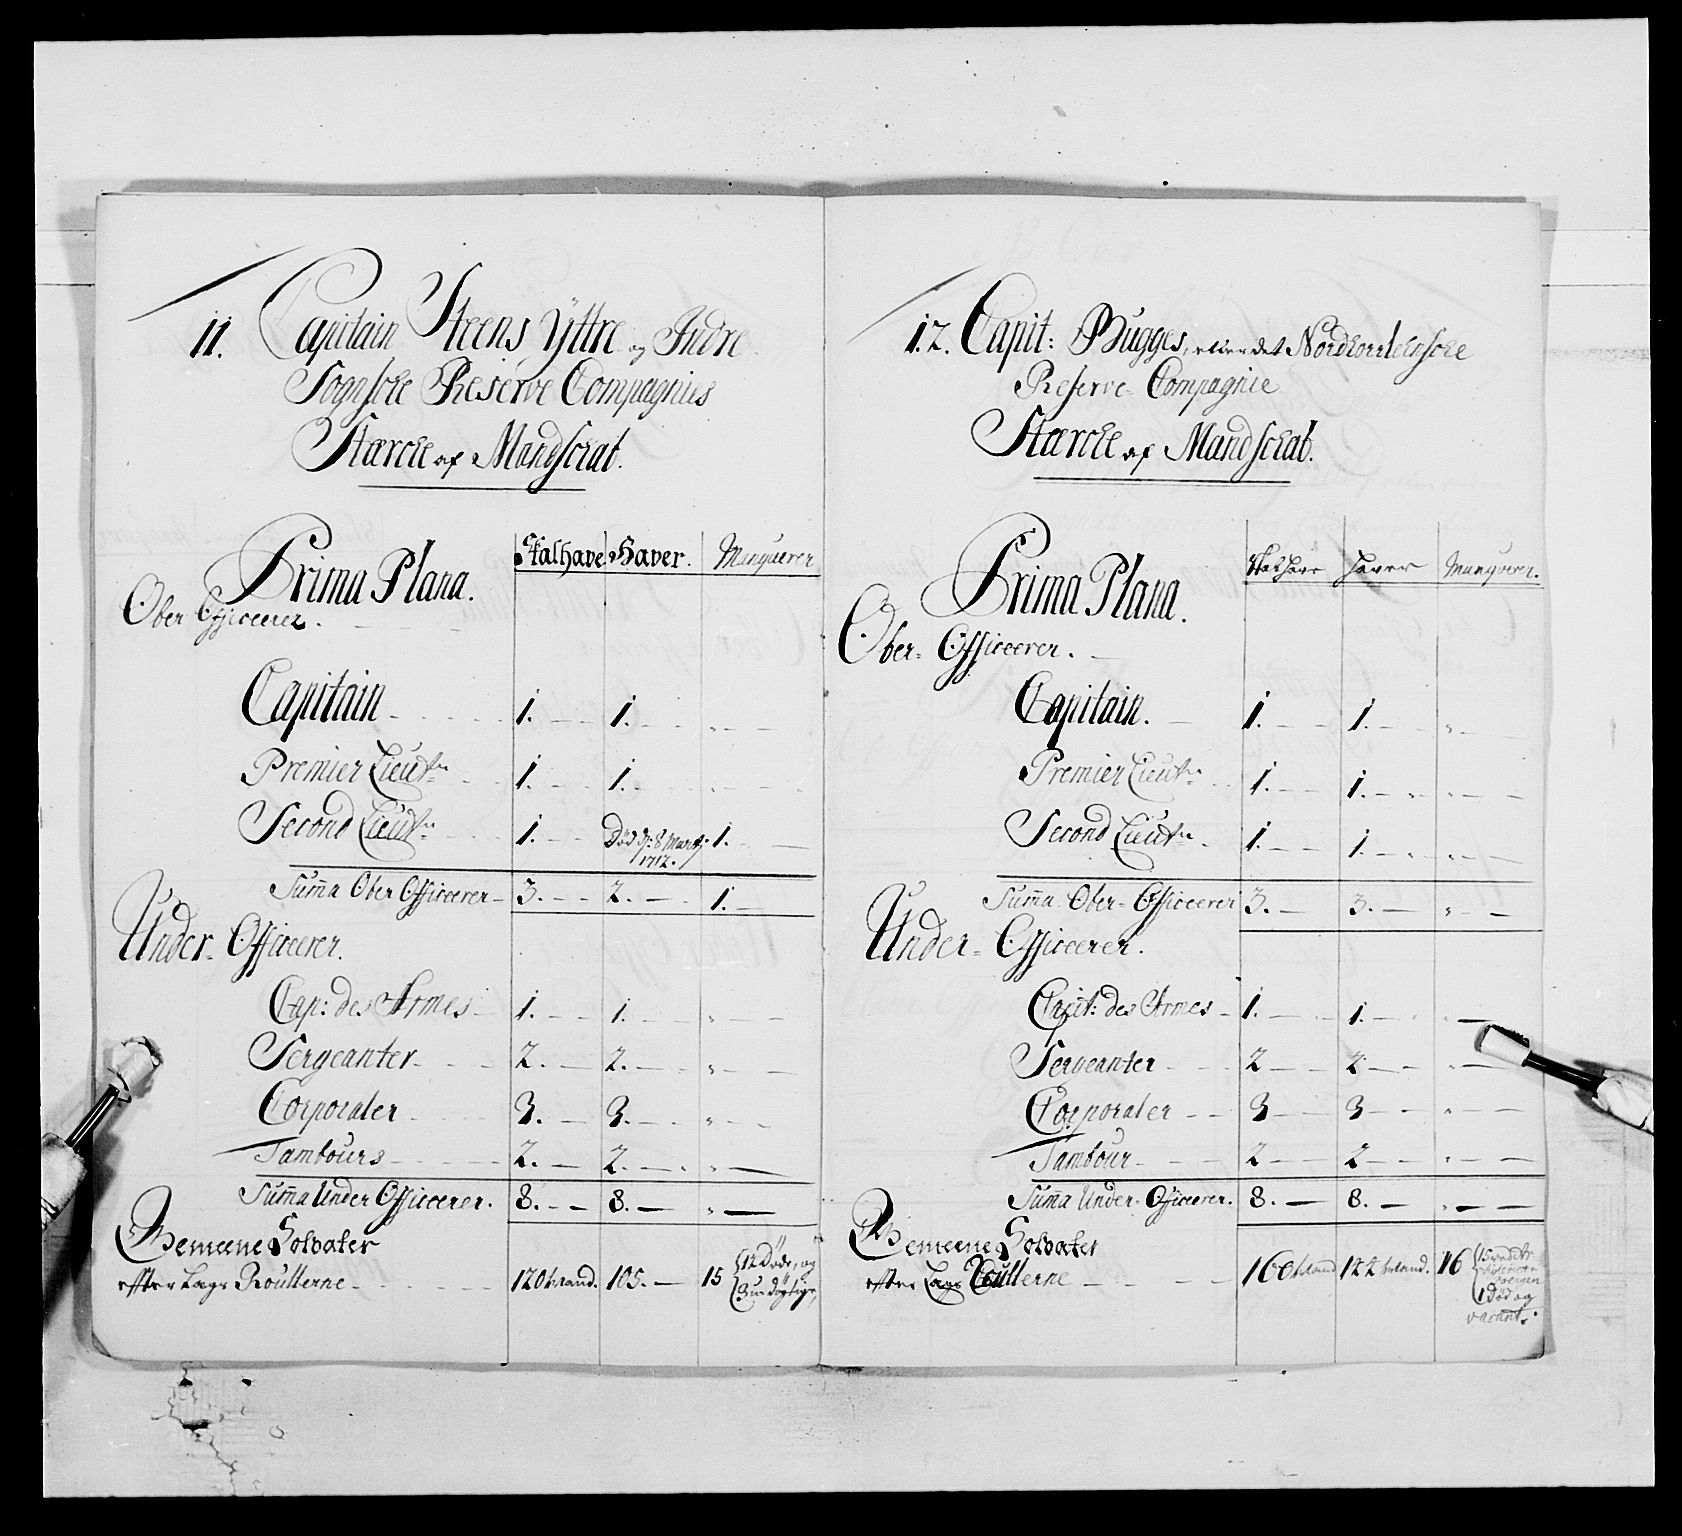 11. Capitain Steens Ÿttre og Indre
Sognsche Reserve Compagnies
Stærcke af Mandschab.
Prima Plana. Skal have Haver. Manquerer
Ober Officerer.
Capitain 1. 1. "
Premier Lieutn 1. 1. "
Second Lieutn 1. Död d: 8 Martj 1712. 1.
Summa Ober Officerer 3. 2. 1.
Under Officerer.
Cap: des Armes 1. 1. "
Sergeanter 2. 2. "
Corporaler 3. 3. "
Tambours 2. 2. "
Summa Under Officerer. 8. 8. "
Gemeene Soldater
efter Lægs Roullerne 120 Mand. 105. 15 12 Döde, og
3 udögtige
12. Capit: Bugges, eller det Nordhordlehnsche
Reserve Compagnie
Stærcke af Mandschab.
Prima Plana. Skal have Haver Manqverer.
Ober Officerer.
Capitain. 1. 1. "
Premier Lieutn 1. 1. "
Second Lieutn 1. 1. "
Summa Ober Officerer 3. 3. "
Under Officerer.
Capit: des Armes 1. 1. "
Sergeanter 2 2 "
Corporaler 3 3 "
Tambour 2 2 "
Summa Under Officerer. 8. 8. "
Gemeene Soldater
efter Lægs Roullerne Mand Mand. 15
1 Död og
vacant.